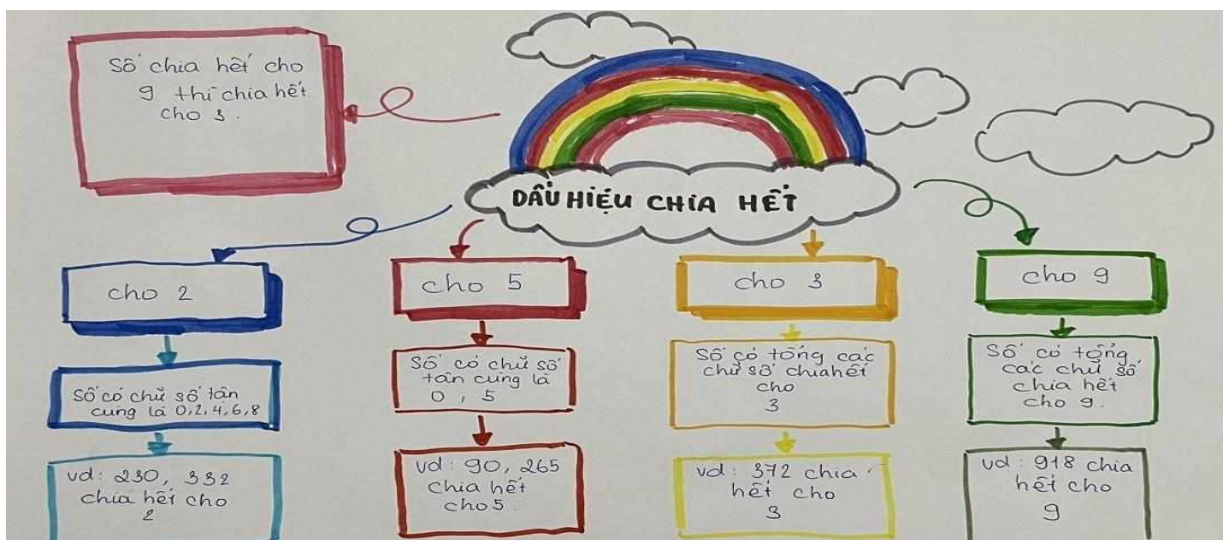 Số chia hết cho
9 thì chia hết
cho 3.
DẤU HIỆU CHIA HẾT
cho 2
Số có chữ số tận
cùng là 0,2,4,6,8
vd: 230, 332
chia hết cho
2
cho 5
Số có chữ số
tận cùng là
0, 5
vd: 90, 265
chia hết
cho 5.
cho 3
Số có tổng các
chữ số chia hết
cho
3
vd: 372 chia
hết cho
3
cho 9
Số có tổng
các chữ số
chia hết
cho 9.
vd: 918 chia
hết cho
9